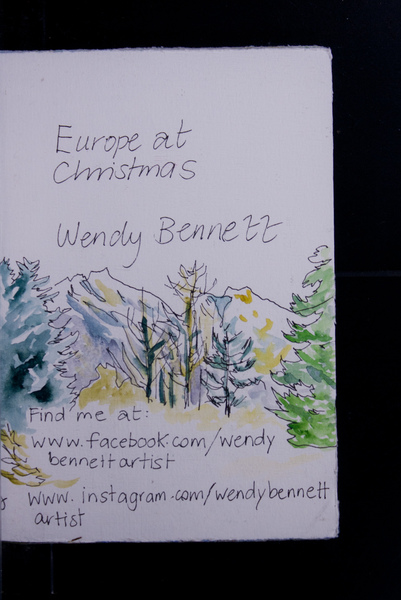 Europe at
Christmas
Wendy Bennett
Find me at:
www.facebook.com/wendy
bennettartist
www.instagram.com/wendybennett
artist